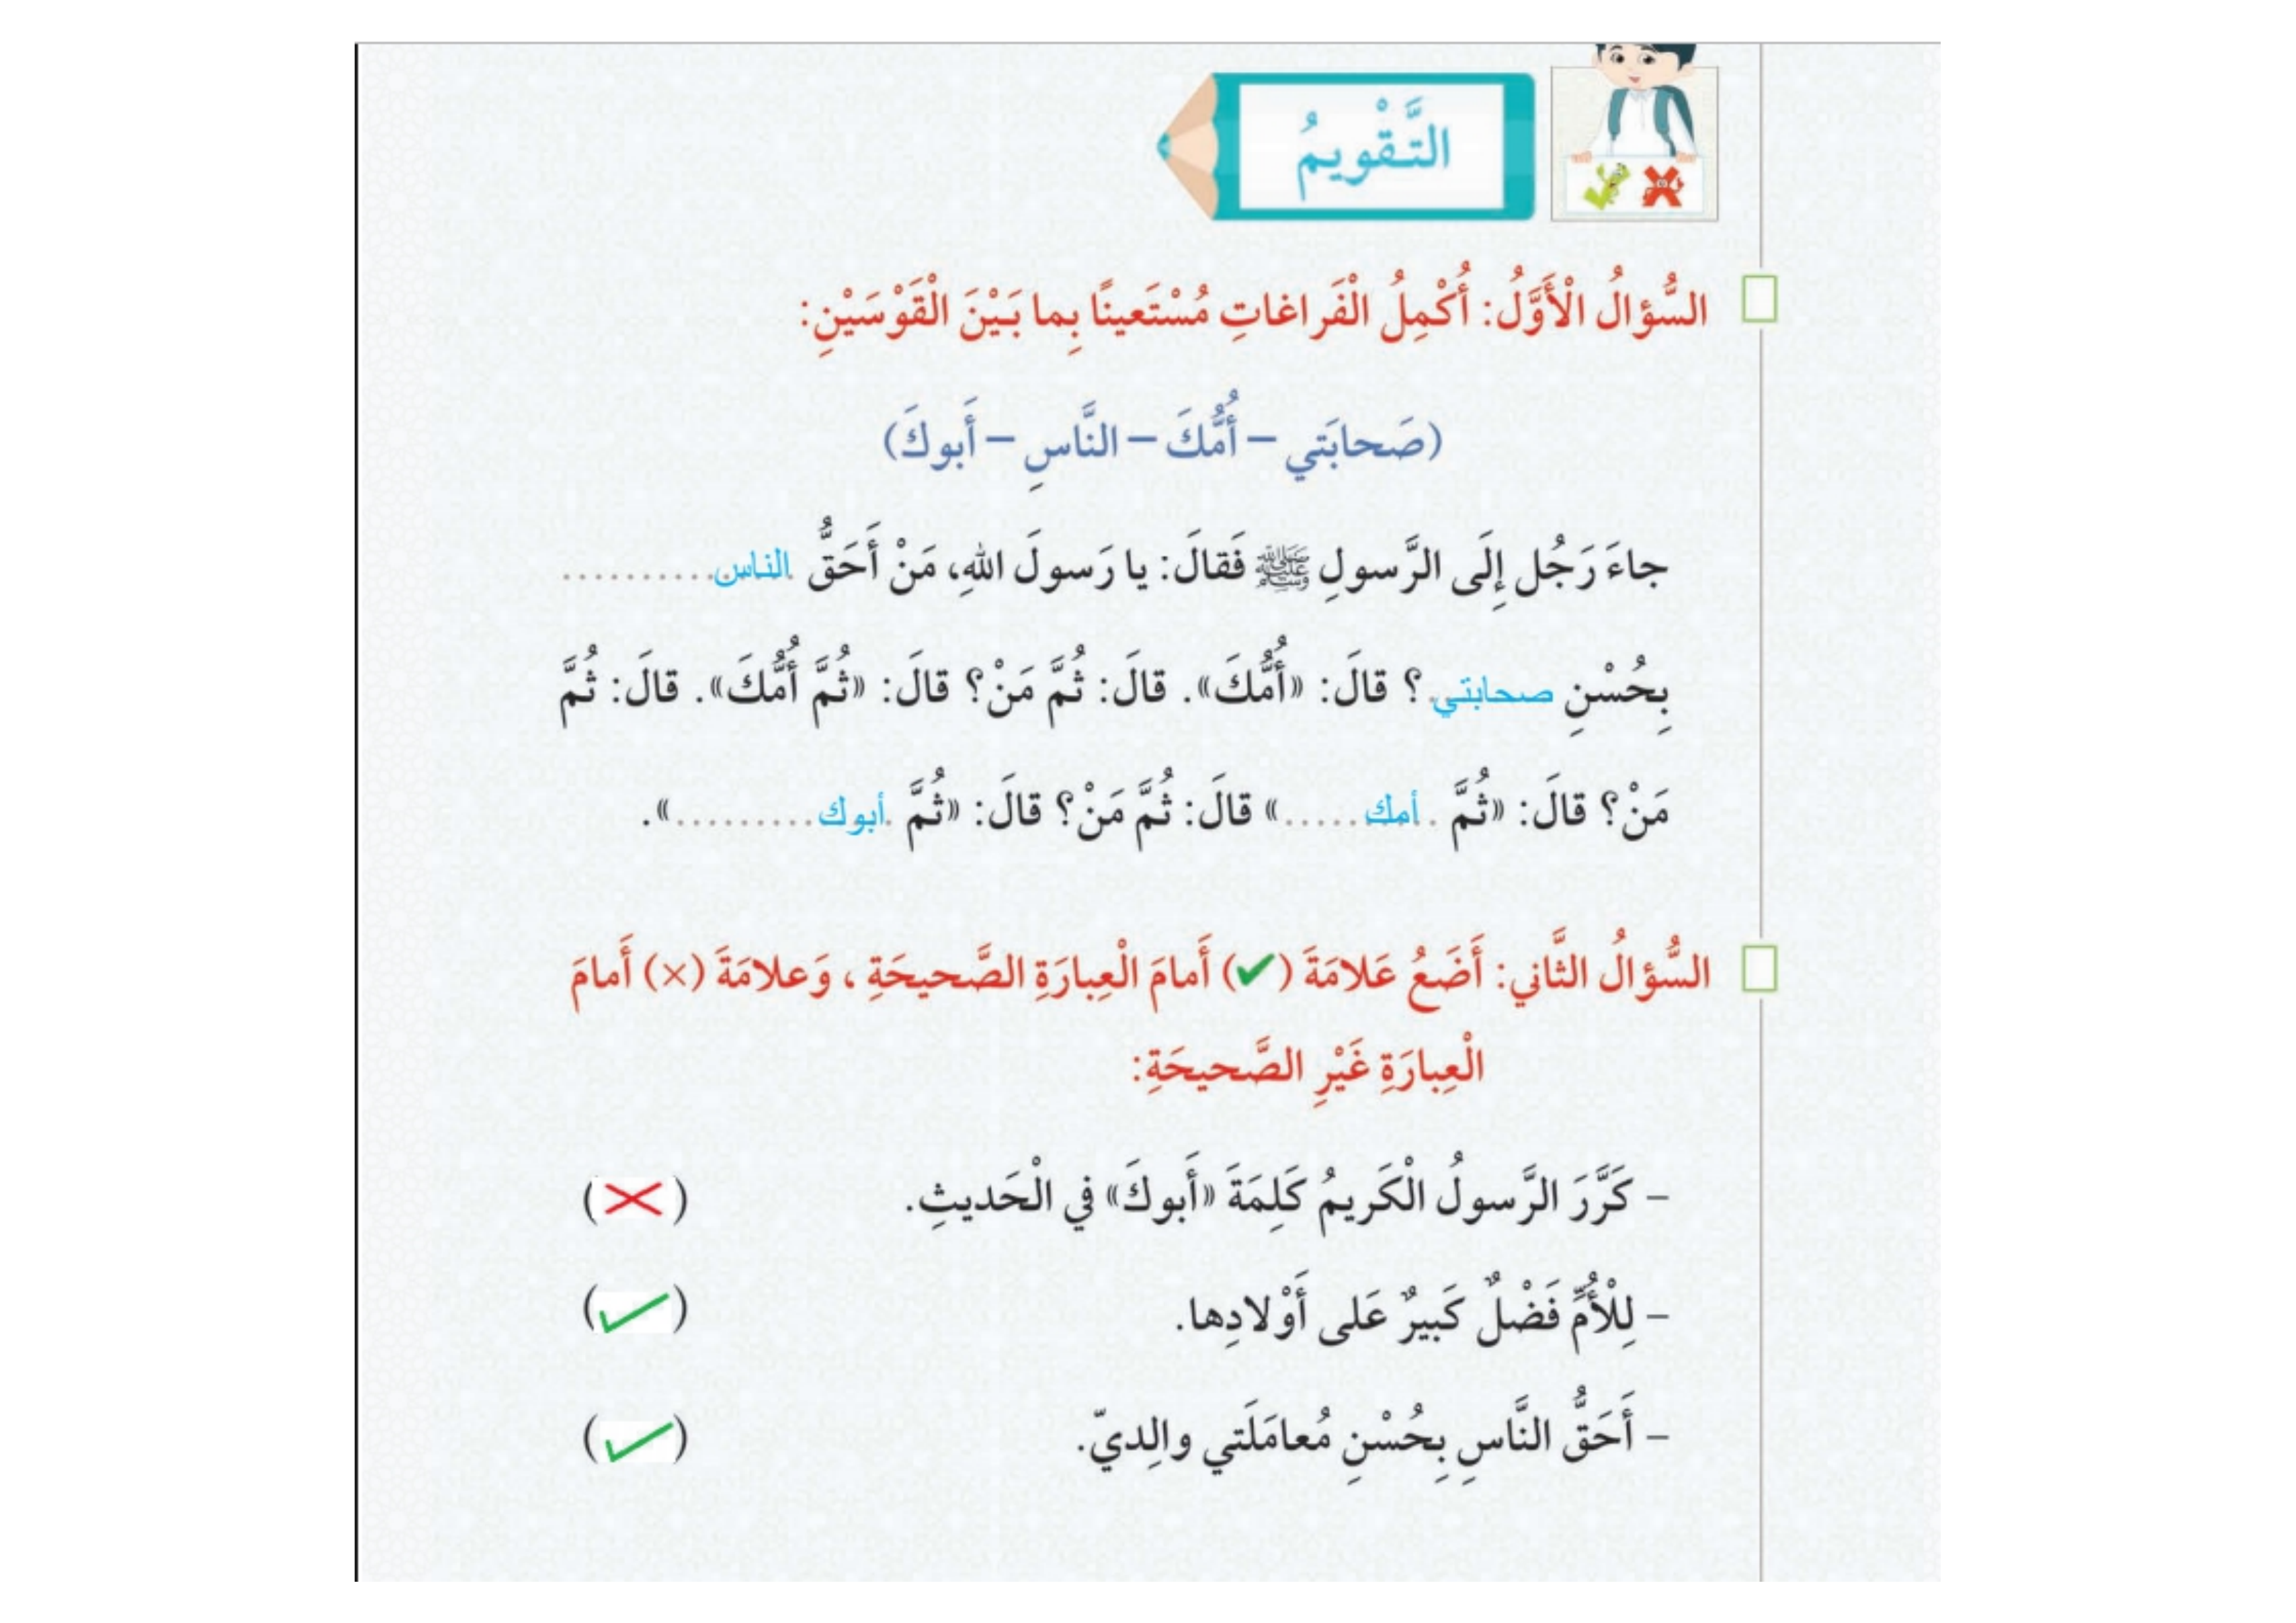 التَّقْويمُ
السُّؤالُ الْأَوَّلُ: أُكْمِلُ الْفَراغاتِ مُسْتَعينًا بِما بَيْنَ الْقَوْسَيْنِ:
(صَحابَتي – أُمُّكَ – النَّاسِ – أَبوكَ)
جاءَ رَجُل إِلَى الرَّسولِ ﷺ فَقالَ: يا رَسولَ اللهِ، مَنْ أَحَقُّ .الناس..........
بِحُسْنِ صحابتي.؟ قالَ: «أُمُّكَ». قالَ: ثُمَّ مَنْ؟ قالَ: «ثُمَّ أُمُّكَ». قالَ: ثُمَّ
مَنْ؟ قالَ: «ثُمَّ .أمك......» قالَ: ثُمَّ مَنْ؟ قالَ: «ثُمَّ .أبوك.........».
السُّؤالُ الثَّاني: أَضَعُ عَلامَةَ (✔) أَمامَ الْعِبارَةِ الصَّحيحَةِ ، وَعلامَةَ (×) أَمامَ
الْعِبارَةِ غَيْرِ الصَّحيحَةِ:
– كَرَّرَ الرَّسولُ الْكَريمُ كَلِمَةَ «أَبوكَ» في الْحَديثِ. (×)
– لِلْأُمِّ فَضْلٌ كَبيرٌ عَلى أَوْلادِها. (✓)
– أَحَقُّ النَّاسِ بِحُسْنِ مُعامَلَتي والِديّ. (✓)